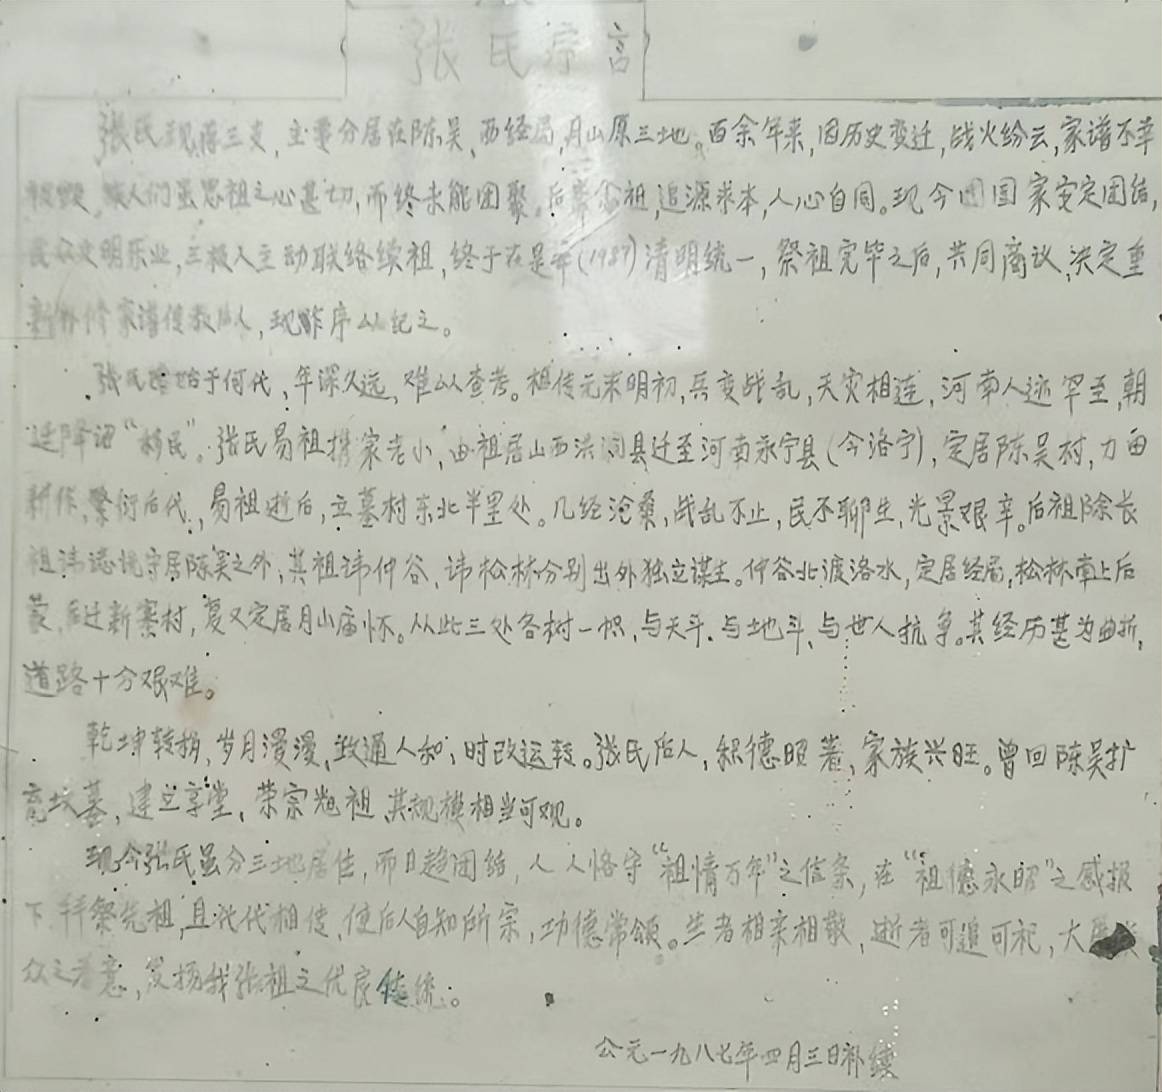 张氏序言
张氏现有三支，主要分居在陈吴、西经局、月山原三地。百余年来，因历史变迁，战火纷云，家谱不幸
被毁，族人们虽思祖之心甚切，而终未能团聚。后辈念祖，追源求本，人心自同。现今国家安定团结，
民众文明乐业，三极人主动联络续祖，终于在是年(1987)清明统一，祭祖完毕之后，共同商议，决定重
新补修家谱传教后人，现作序以纪之。
张氏始于何代，年深久远，难以查考。祖传元末明初，兵变战乱，天灾相连，河南人迹罕至，朝
廷降诏“移民”。张氏易祖携家老小，由祖居山西洪洞县迁至河南永宁县(今洛宁)，定居陈吴村，力田
耕作，繁衍后代，易祖逝后，立墓村东北半里处。几经沧桑，战乱不止，民不聊生，光景艰辛。后祖除长
祖讳守居陈吴之外，其祖讳仲谷，讳松林分别出外独立谋生。仲谷北渡洛水，定居经局，松林南上后
蒙，后迁新寨村，复又定居月山庙怀。从此三处各树一帜，与天斗、与地斗、与世人抗争。其经历甚为曲折，
道路十分艰难。
乾坤转换，岁月漫漫，政通人和，时改运转。张氏后人，积德昭著，家族兴旺。曾回陈吴扩
充坟墓，建立享堂，荣宗光祖，其规模相当可观。
现今张氏虽分三地居住，而日趋团结，人人恪守“祖情万年”之信条，在“祖德永昭”之感报
下拜祭先祖，且代代相传，使后人自知所宗，功德常颂。生者相亲相敬，逝者可追可祀，大
众之着意，发扬我张祖之优良传统。
公元一九八七年四月三日补续